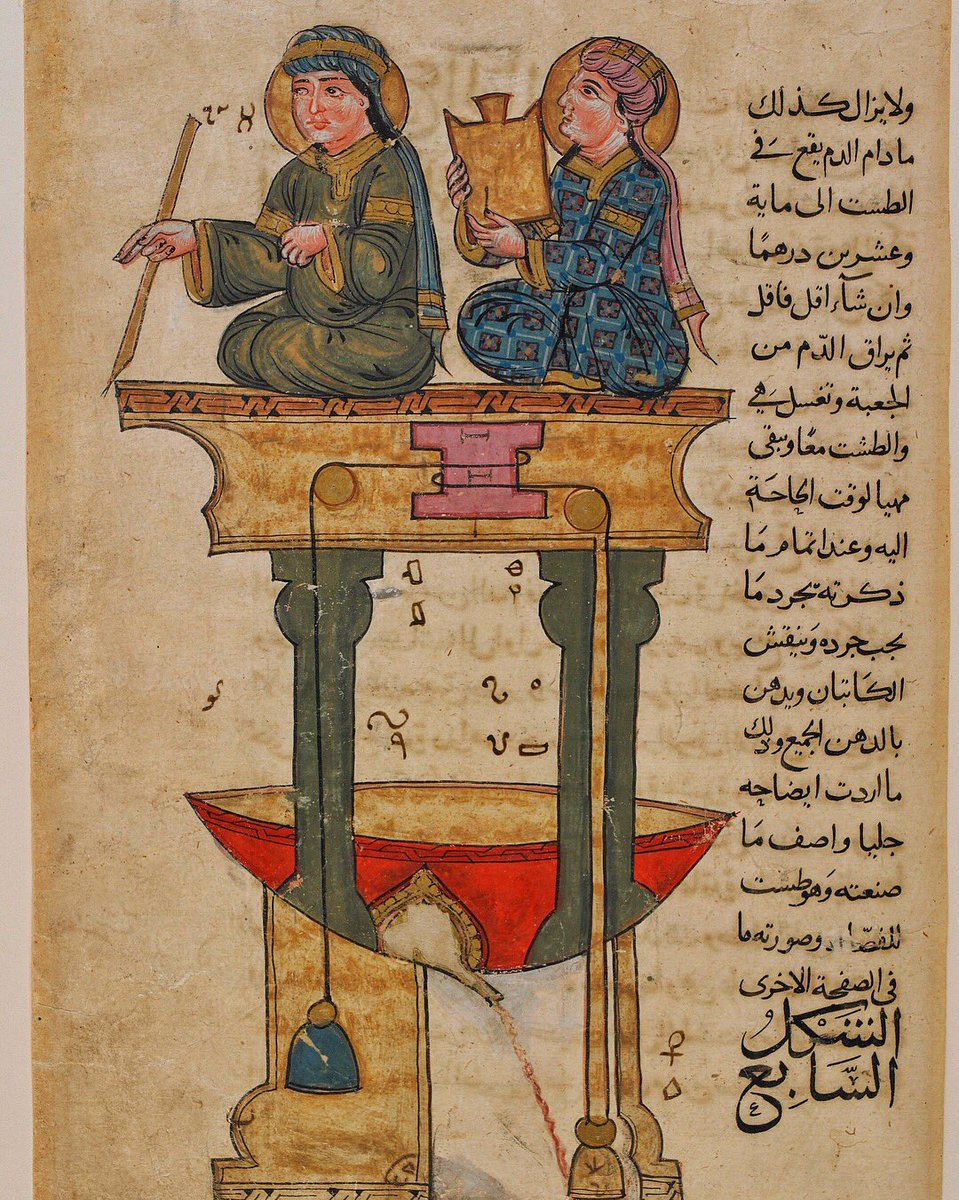 ولا يزال كذلك
ما دام الدم يقع في
الطست الى ماية
وعشرين درهما
وان شآء اقل فاقل
ثم يراق الدّم من
الجعبة وتغسل هي
والطشت معًا ويبقى
مهيا لوقت الحاجَة
اليه وعند اتمام مَا
ذكرته يجرد مَا
يجب جرده وَينقش
الكاتبان ويدهن
بالدهن الجميع وذلك
ما اردت ايضاحه
جليا واصف مَا
صنعته وَهو طست
للفصّاد وصورته ما
في الصفحة الاخرى
الشكل
السَّابع